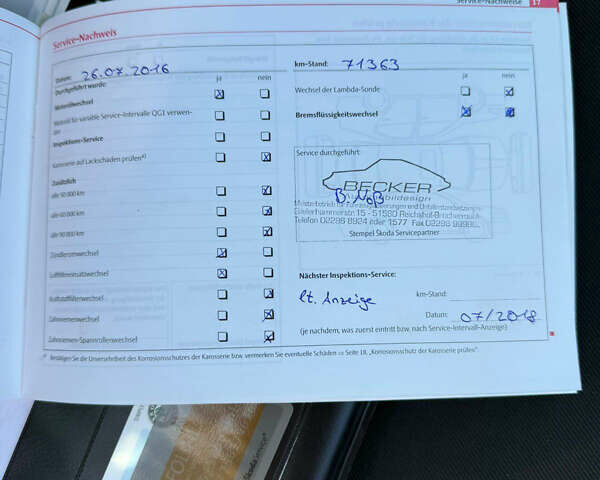 Service-Nachweise 17
Service-Nachweis
Datum: 26.07.2016
ja nein
Durchgeführt wurde:
Motorölwechsel
Motoröl für variable Service-Intervalle QG1 verwen-
det
Inspektions-Service
Karosserie auf Lackschäden prüfen
Zusätzlich
alle 30 000 km
alle 60 000 km
alle 90 000 km
Zündkerzenwechsel
Luftfiltereinsatzwechsel
Kraftstofffilterwechsel
Zahnriemenwechsel
Zahnriemen-Spannrollenwechsel
km-Stand: 71363
ja nein
Wechsel der Lambda-Sonde
Bremsflüssigkeitswechsel
Service durchgeführt:
BECKER
B. Noß
Telefon 02296 8924 oder 1577 Fax
Stempel Škoda Servicepartner
Nächster Inspektions-Service:
lt. Anzeige
km-Stand:
Datum: 07/2018
(je nachdem, was zuerst eintritt bzw. nach Service-Intervall-Anzeige)
Bestätigen Sie die Unversehrtheit des Korrosionsschutzes der Karosserie bzw. vermerken Sie eventuelle Schäden ⇒ Seite 18, „Korrosionsschutz der Karosserie prüfen".